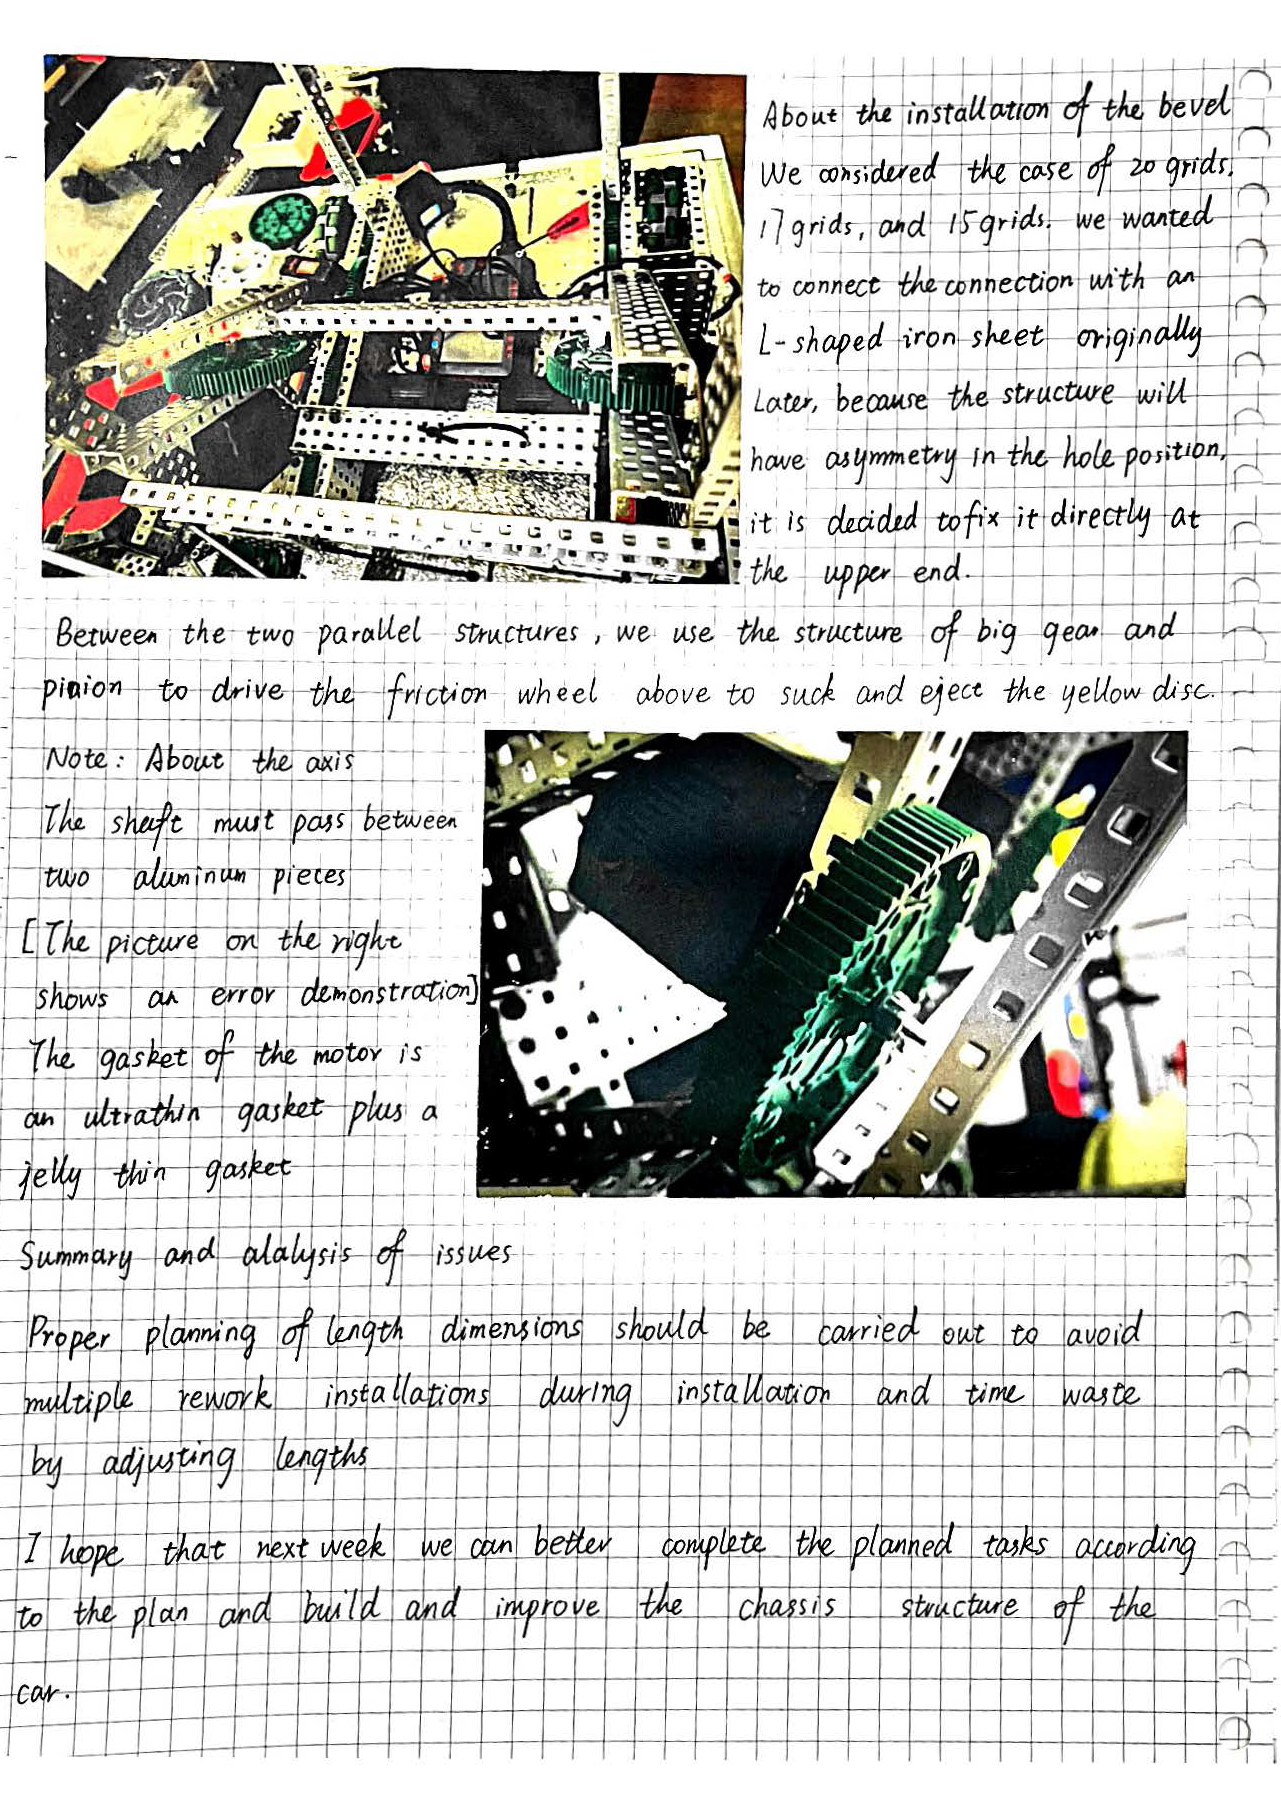 About the installation of the bevel
We considered the case of 20 grids,
17 grids, and 15 grids. we wanted
to connect the connection with an
L-shaped iron sheet originally
Later, because the structure will
have asymmetry in the hole position,
it is decided to fix it directly at
the upper end.
Between the two parallel structures, we use the structure of big gear and
pinion to drive the friction wheel above to suck and eject the yellow disc.
Note: About the axis
The shaft must pass between
two aluminum pieces
[The picture on the right
shows an error demonstration]
The gasket of the motor is
an ultrathin gasket plus a
jelly thin gasket
Summary and alalysis of issues
Proper planning of length dimensions should be carried out to avoid
multiple rework installations during installation and time waste
by adjusting lengths
I hope that next week we can better complete the planned tasks according
to the plan and build and improve the chassis structure of the
car.